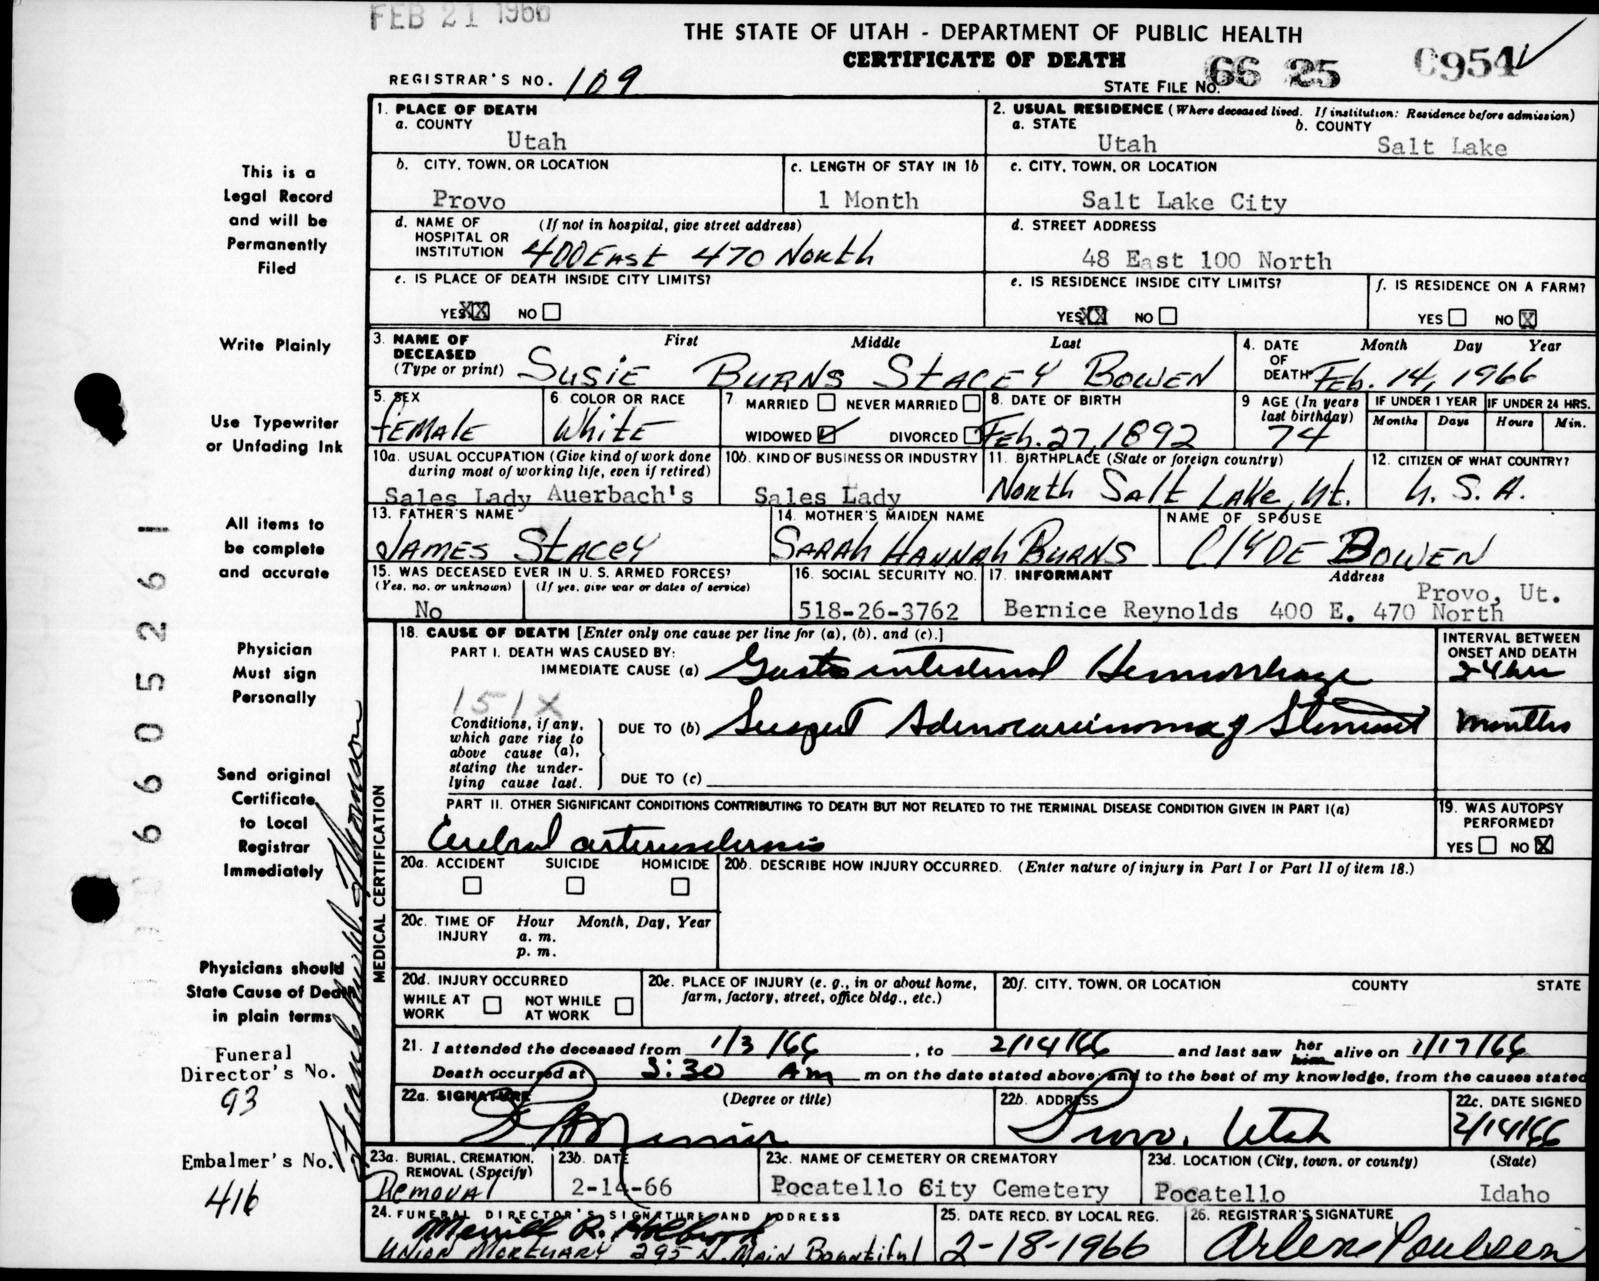 FEB 21 1966
THE STATE OF UTAH - DEPARTMENT OF PUBLIC HEALTH
CERTIFICATE OF DEATH
REGISTRAR'S NO. 109
STATE FILE NO. 66 25 0954
This is a
Legal Record
and will be
Permanently
Filed
Write Plainly
Use Typewriter
or Unfading Ink
All items to
be complete
and accurate
Physician
Must sign
Personally
Send original
Certificate
to Local
Registrar
Immediately
Physicians should
State Cause of Death
in plain terms
Funeral
Director's No.
93
Embalmer's No.
416
6605261
1. PLACE OF DEATH
a. COUNTY
Utah
2. USUAL RESIDENCE (Where deceased lived. If institution: Residence before admission)
a. STATE b. COUNTY
Utah Salt Lake
b. CITY, TOWN, OR LOCATION
Provo
c. LENGTH OF STAY IN 1b
1 Month
c. CITY, TOWN, OR LOCATION
Salt Lake City
d. NAME OF HOSPITAL OR INSTITUTION (If not in hospital, give street address)
400 East 470 North
d. STREET ADDRESS
48 East 100 North
e. IS PLACE OF DEATH INSIDE CITY LIMITS?
YES X NO
e. IS RESIDENCE INSIDE CITY LIMITS?
YES X NO
f. IS RESIDENCE ON A FARM?
YES NO X
3. NAME OF DECEASED (Type or print) First Middle Last
SUSIE BURNS STACEY BOWEN
4. DATE OF DEATH Month Day Year
Feb. 14, 1966
5. SEX
female
6. COLOR OR RACE
White
7. MARRIED NEVER MARRIED
WIDOWED ✓ DIVORCED
8. DATE OF BIRTH
Feb. 27, 1892
9 AGE (In years last birthday)
74
IF UNDER 1 YEAR IF UNDER 24 HRS.
Months Days Hours Min.
10a. USUAL OCCUPATION (Give kind of work done during most of working life, even if retired)
Sales Lady Auerbach's
10b. KIND OF BUSINESS OR INDUSTRY
Sales Lady
11. BIRTHPLACE (State or foreign country)
North Salt Lake, Ut.
12. CITIZEN OF WHAT COUNTRY?
U. S. A.
13. FATHER'S NAME
JAMES STACEY
14. MOTHER'S MAIDEN NAME
SARAH HANNAH BURNS
NAME OF SPOUSE
CLYDE BOWEN
15. WAS DECEASED EVER IN U. S. ARMED FORCES?
(Yes, no, or unknown) (If yes, give war or dates of service)
No
16. SOCIAL SECURITY NO.
518-26-3762
17. INFORMANT Address
Bernice Reynolds 400 E. 470 North Provo, Ut.
MEDICAL CERTIFICATION
18. CAUSE OF DEATH [Enter only one cause per line for (a), (b), and (c).]
INTERVAL BETWEEN ONSET AND DEATH
PART I. DEATH WAS CAUSED BY:
IMMEDIATE CAUSE (a) Gastrointestinal Hemorrhage 24 hrs
151X
Conditions, if any, which gave rise to above cause (a), stating the underlying cause last.
DUE TO (b) Suspect Adenocarcinoma of Stomach months
DUE TO (c)
PART II. OTHER SIGNIFICANT CONDITIONS CONTRIBUTING TO DEATH BUT NOT RELATED TO THE TERMINAL DISEASE CONDITION GIVEN IN PART I(a)
Cerebral arteriosclerosis
19. WAS AUTOPSY PERFORMED?
YES NO X
20a. ACCIDENT SUICIDE HOMICIDE
20b. DESCRIBE HOW INJURY OCCURRED. (Enter nature of injury in Part I or Part II of item 18.)
20c. TIME OF INJURY Hour Month, Day, Year
a. m.
p. m.
20d. INJURY OCCURRED
WHILE AT WORK NOT WHILE AT WORK
20e. PLACE OF INJURY (e. g., in or about home, farm, factory, street, office bldg., etc.)
20f. CITY, TOWN, OR LOCATION COUNTY STATE
21. I attended the deceased from 1/3/66, to 2/14/66 and last saw her him alive on 1/17/66
Death occurred at 3:30 Am m on the date stated above; and to the best of my knowledge, from the causes stated
22a. SIGNATURE (Degree or title)
22b. ADDRESS
Provo, Utah
22c. DATE SIGNED
2/14/66
23a. BURIAL, CREMATION, REMOVAL (Specify)
Removal
23b. DATE
2-14-66
23c. NAME OF CEMETERY OR CREMATORY
Pocatello City Cemetery
23d. LOCATION (City, town, or county) (State)
Pocatello Idaho
24. FUNERAL DIRECTOR'S SIGNATURE AND ADDRESS
Merrill R. Holbrook
Union Mortuary 295 N. Main Bountiful
25. DATE RECD. BY LOCAL REG.
2-18-1966
26. REGISTRAR'S SIGNATURE
Arlene Poulsen